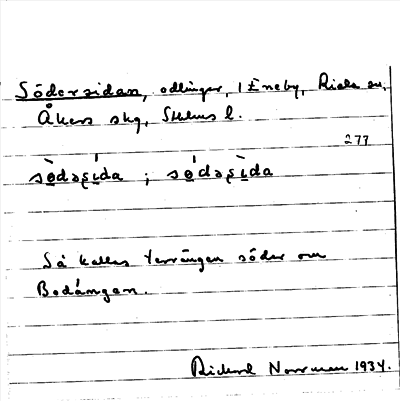 Södersidan, odlingar, i Eneby, Riala sn,
Åkers skg, Sthlms l.
277
sö̀dəʂí̀da ; sö́dəʂì̀da
Så kallas terrängen söder om
Bodängan.
Rickard Norrman 1934.